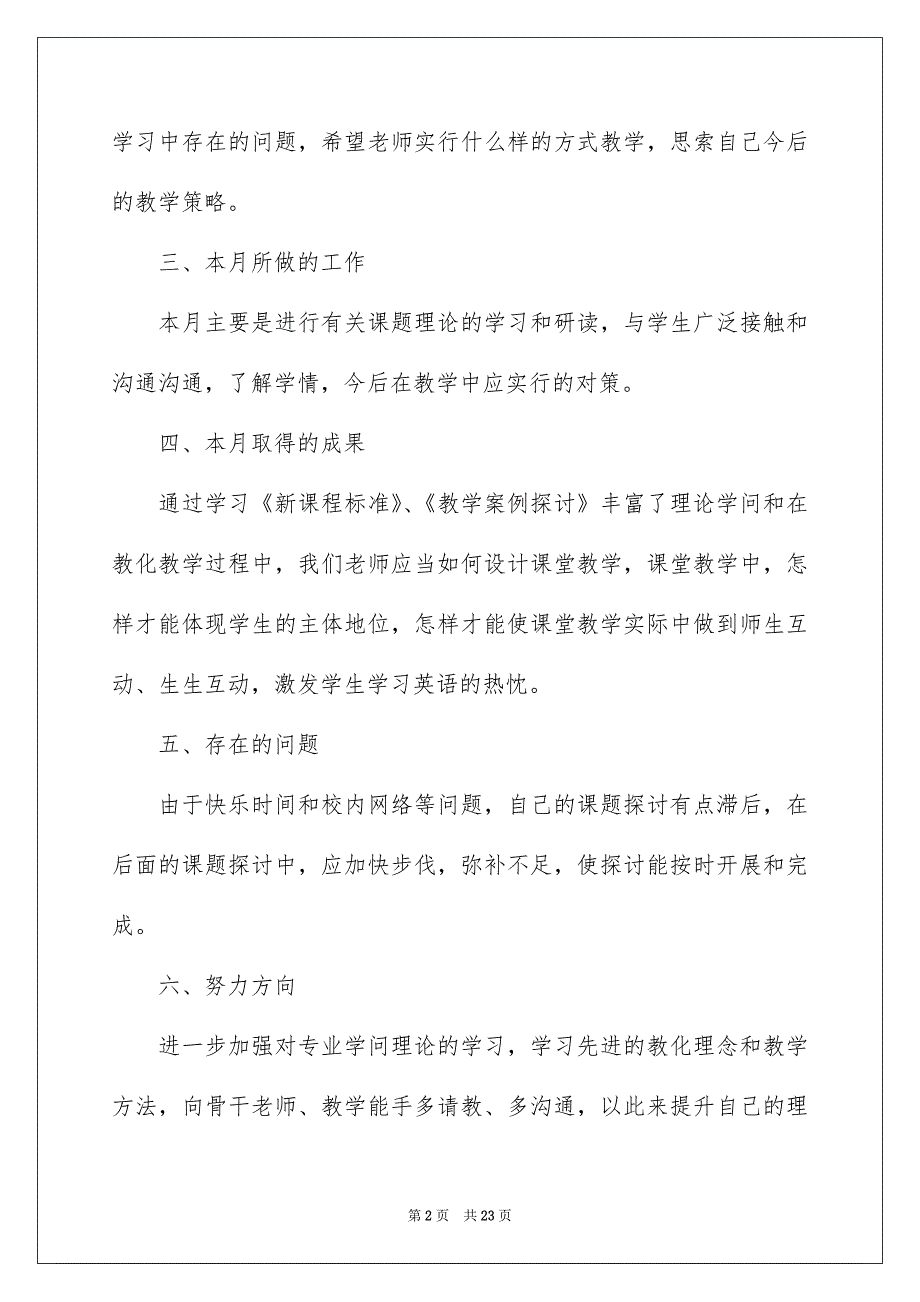 学习中存在的问题，希望老师实行什么样的方式教学，思索自己今后
的教学策略。
三、本月所做的工作
本月主要是进行有关课题理论的学习和研读，与学生广泛接触和
沟通沟通，了解学情，今后在教学中应实行的对策。
四、本月取得的成果
通过学习《新课程标准》、《教学案例探讨》丰富了理论学问和在
教化教学过程中，我们老师应当如何设计课堂教学，课堂教学中，怎
样才能体现学生的主体地位，怎样才能使课堂教学实际中做到师生互
动、生生互动，激发学生学习英语的热忱。
五、存在的问题
由于快乐时间和校内网络等问题，自己的课题探讨有点滞后，在
后面的课题探讨中，应加快步伐，弥补不足，使探讨能按时开展和完
成。
六、努力方向
进一步加强对专业学问理论的学习，学习先进的教化理念和教学
方法，向骨干老师、教学能手多请教、多沟通，以此来提升自己的理
第 2 页 共 23 页